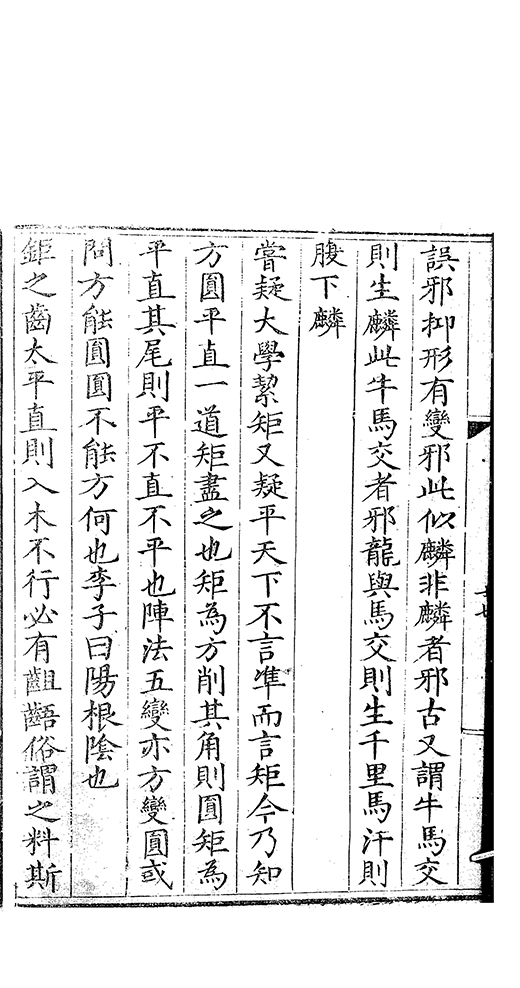 誤邪抑形有變邪此似麟非麟者邪古又謂牛馬交
則生麟此牛馬交者邪龍與馬交則生千里馬汗則
腹下麟
嘗疑大學絜矩又疑平天下不言準而言矩今乃知
方圓平直一道矩盡之也矩為方削其角則圓矩為
平直其尾則平不直不平也陣法五變亦方變圓或
問方能圓圓不能方何也李子曰陽根陰也
鉅之齒太平直則入木不行必有齟齬俗謂之料斯